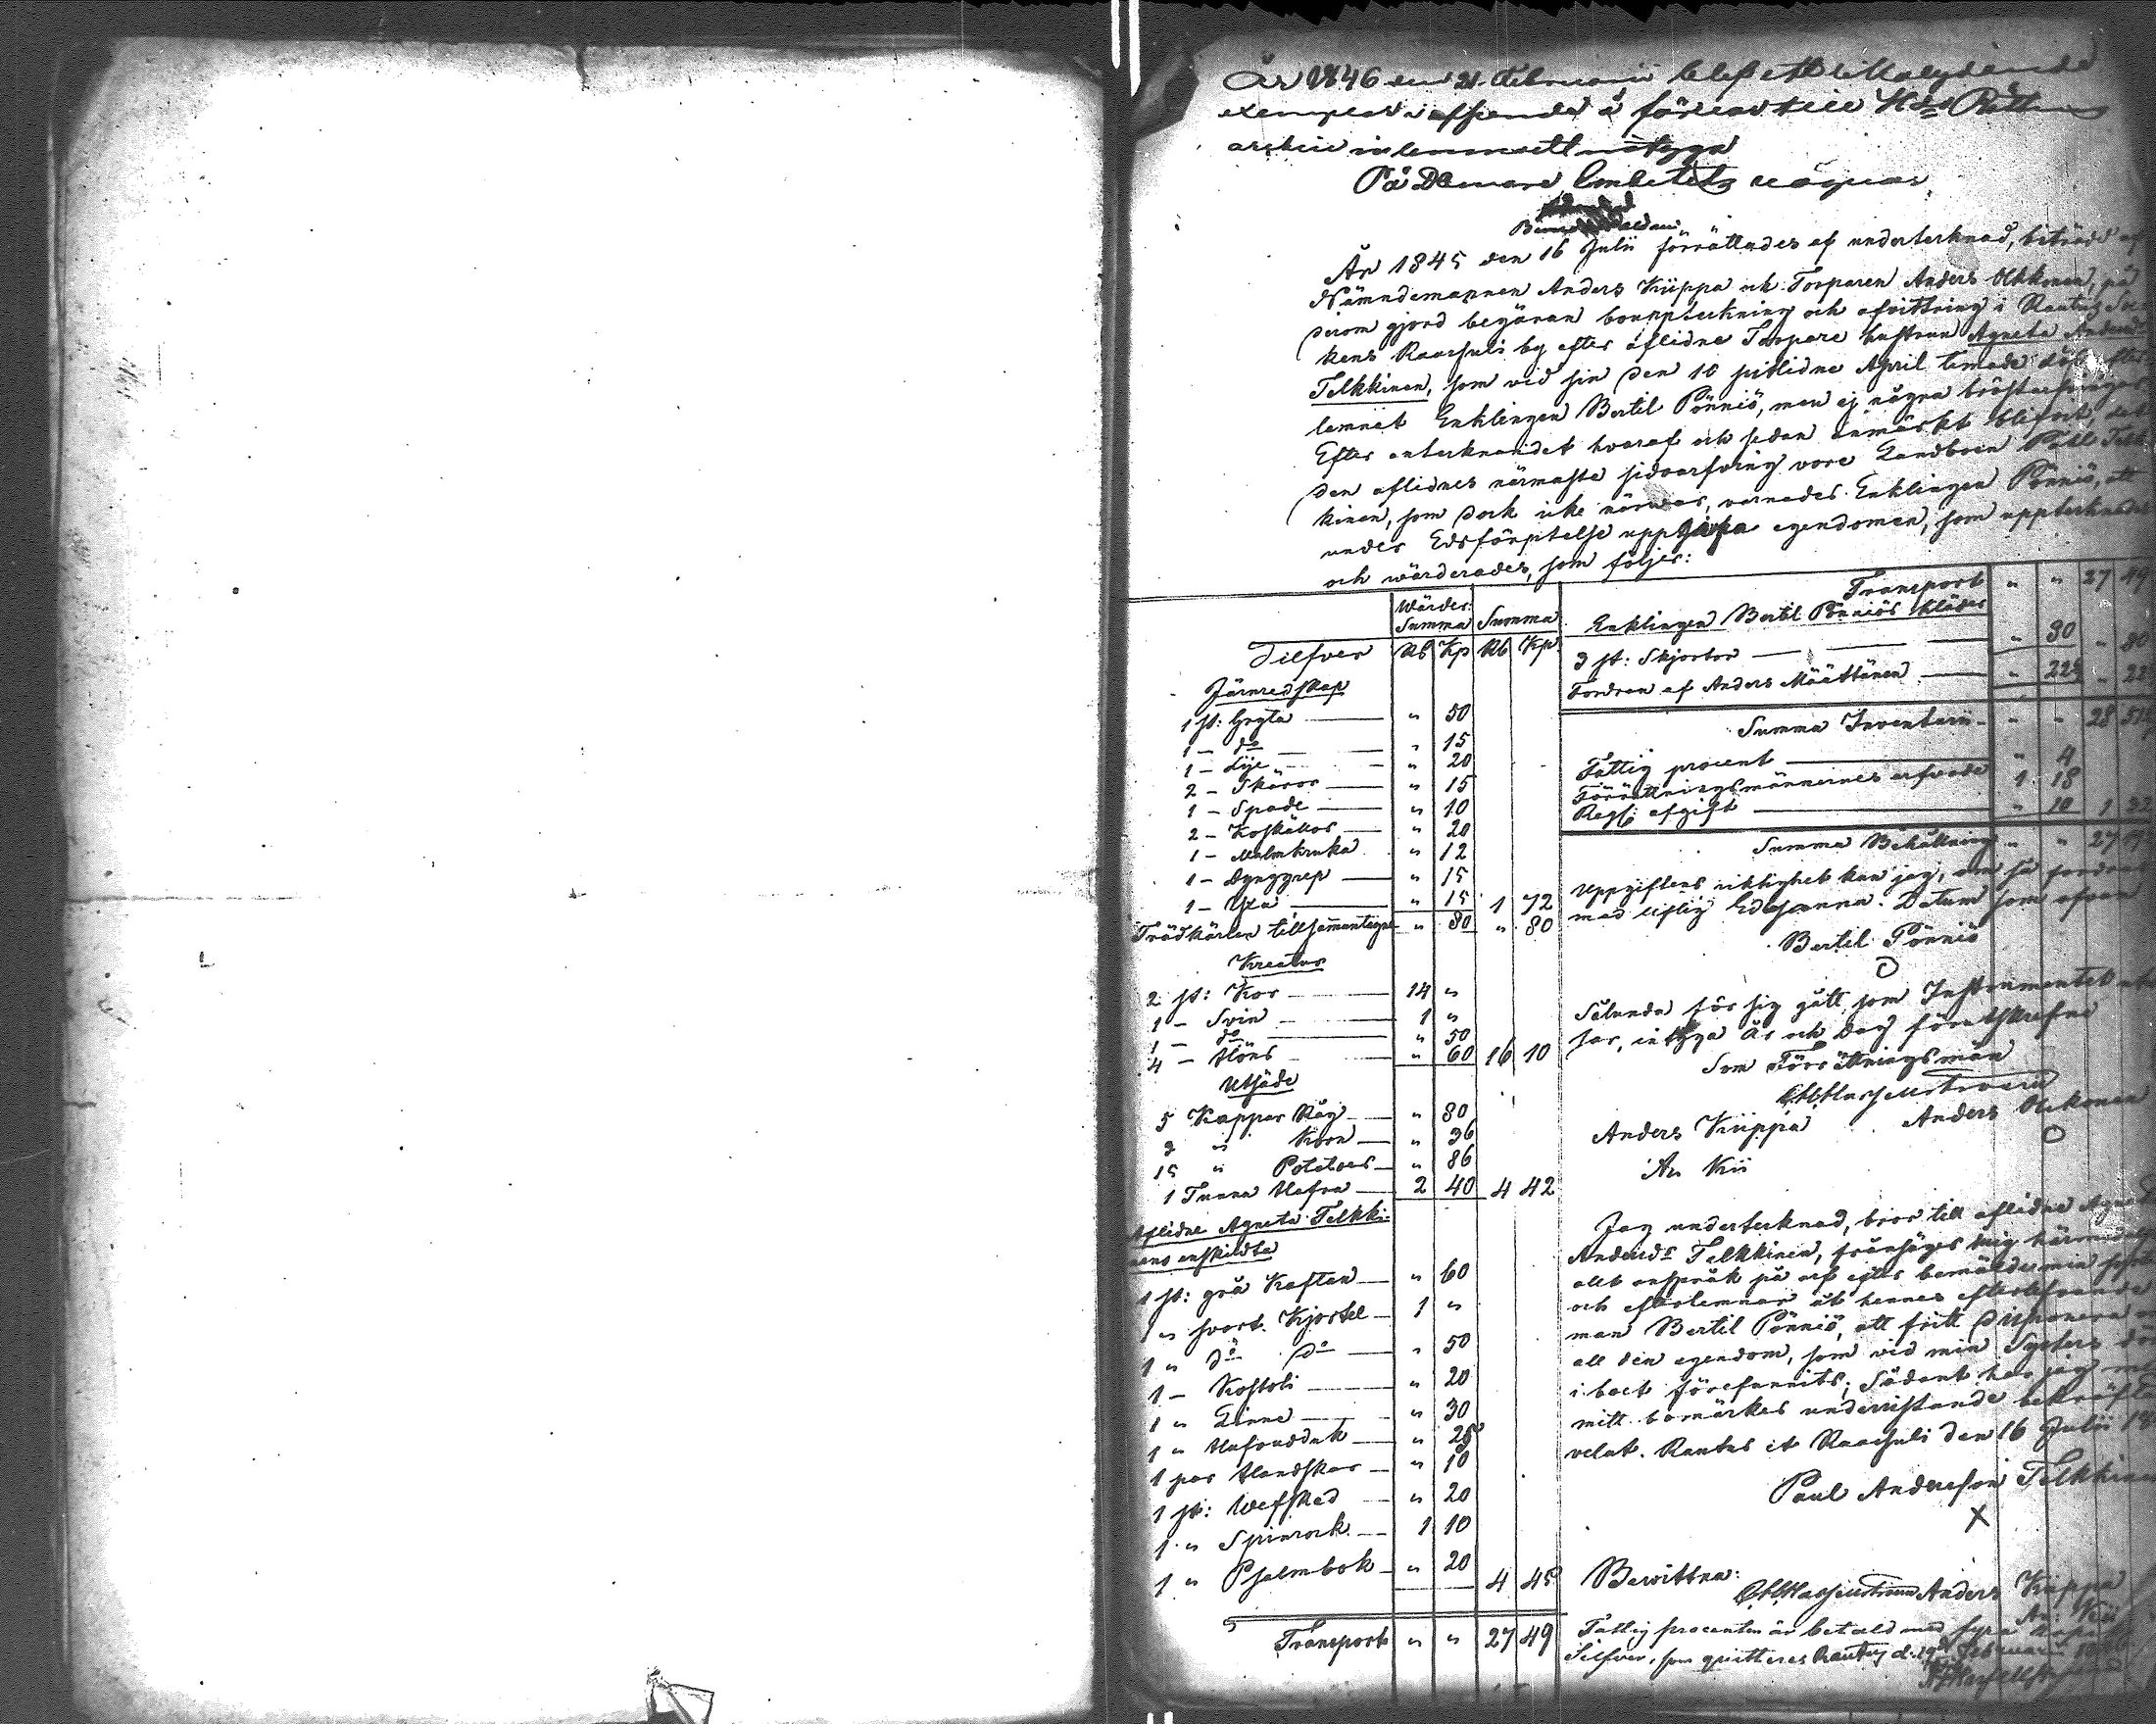 År 1846 den 21 Februarii blef ett lika lydande
exemplar
På Domare Embetets vägnar
År 1845 den 16 Julii förrättades af undertecknad, biträdd af
Nämndemannen Anders Kiippa och Torparen Anders Ukkonen, på
derom gjord begäran bouppteckning och afvittring i Rautus Soc-
kens Raasuli by efter aflidne Torpare hustrun Agneta Andersdr
Telkkinen, som vid sin den 10 sistlidne April timade död efter-
lemnat Enklingen Bertil Pönniö, men ej några bröstarfvingar
Efter antecknandet hvaraf och sedan anmärkt blifvit, det
den aflidnes närmaste sidoarfving vore Landboen Påhl Telk-
kinen, som dock icke närvar, varnades Enklingen Pönniö, att
under Edsförpligtelse uppgifva egendomen, som upptecknades
och wärderades, som följer:
Wärder: Summa Summa
Silfver Rb Kp Rb Kp
Järnredskap
1 st: Gryta — " 50
1 — do — " 15
1 — Lije — " 20
2 — Skäror — " 15
1 — Spade — " 10
2 — Koskällor — " 20
1 — Malmkruka " 12
1 — Dynggrep — " 15
1 — Yxa — " 15 1 72
Trädkärlen tillsammantagne " 80 " 80
Kreatur
2 st: Kor — 14 "
1 — Svin — 1 "
1 — do — " 50
4 — Höns — " 60 16 10
Utsäde
5 Kappar Råg — " 80
3 " Korn — " 36
15 " Potatoes — " 86
1 Tunna Hafra — 2 40 4 42
Aflidne Agneta Telkki-
nens enskildta
1 st: grå Kaftan — " 60
1 " svart Kjortel — 1 "
1 " do do — " 50
1 — Kostoli — " 20
1 " Linne — " 30
1 " Hufvudduk — " 25
1 par Handskar — " 10
1 st: Wefsked — " 20
1 " Spinrock — 1 10
1 " Psalmbok — " 20 4 45
Transport " " 27 49
Transport " " 27 49
Enklingen Bertil Pönniös kläder
3 st: Skjortor — " 80 " 80
Fordran af Anders Määttänen — " 22½ " 22
Summa Inventarii " " 28 51
Fattig procent — " 4
Förrättningsmännernes arfvode 1 18
Reg: afgift — " 10 1 32
Summa Behållning " " 27 19
Uppgiftens riktighet kan jag, om så fordras
med liflig Ed besanna. Datum som ofvan
Bertil Pönniö
Sålunda för sig gått, som Instrumentet utvi-
sar, intyga År och Dag förutskrefne
Som Förrättningsmän
Anders Kiippa Anders Ukkonen
An Kii
Jag undertecknad, bror till aflidne Agneta
Andersdr Telkkinen, frånsäger mig härmedelst
allt anspråk på arf efter bemälde min syster
och efterlemnar åt hennes efterlefvande
man Bertil Pönniö, att fritt disponera
all den egendom, som vid min Systers död
i boet förefunnits; Sådant har jag med
mitt bomärkes undersättande bekräfta
velat. Rautus et Raasuli den 16 Julii 18
Paul Andersson Telkkinen
X
Bevittna:
Anders Kiippa
An: Kii
Fattig procenten är betald med fyra kopek
Silfver, som quitteras Rautus d. 19 Februarii